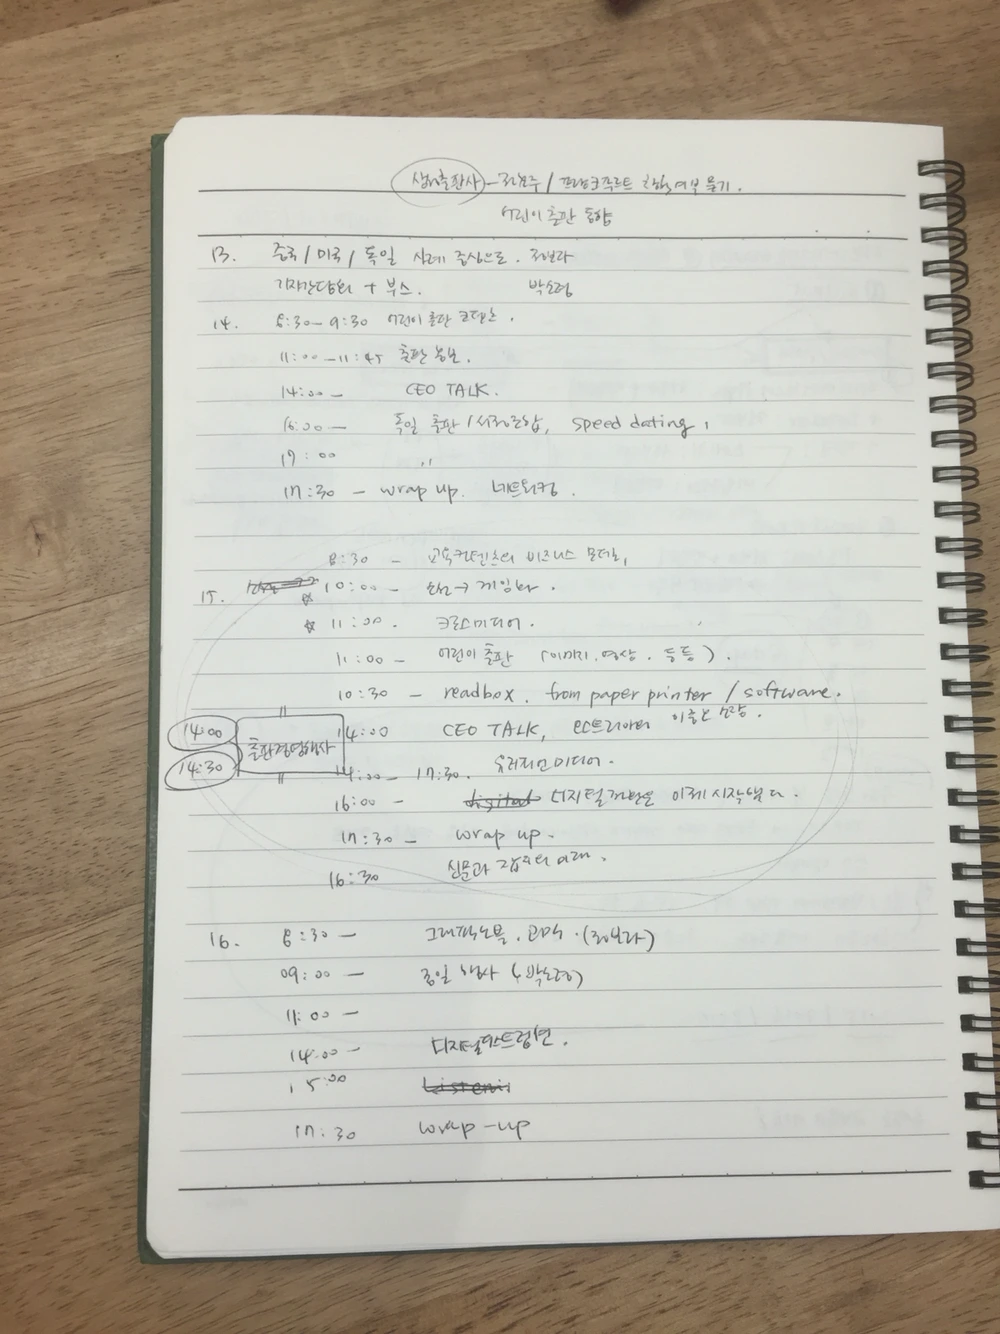 출판사 - / 프랑크푸르트 여부 묻기.
어린이 출판 통합
13. 중국 / 미국 / 독일 사례 중심으로. 정보라
기자간담회 + 부스. 박소령
14. 8:30 - 9:30 어린이 출판 콘텐츠.
11:00 - 11:45 출판
14:00 - CEO TALK.
16:00 - 독일 출판 / 서점조합, speed dating,
17:00 〃
17:30 - wrap up. 네트워킹.
8:30 - 교육컨텐츠의 비즈니스 모델,
15. ☆ 10:00 - → 게임화.
☆ 11:00. 크로스미디어.
11:00 - 어린이 출판 (이미지. 영상. 등등).
10:30 - readbox. from paper printer / software.
14:00 14:00 CEO TALK,
14:30 출판경영행사
14:00 - 17:30. 유러피언미디어.
16:00 - digital 디지털 이제 시작했다.
17:30 - wrap up.
16:30 신문과 잡지의 미래.
16. 8:30 - 그래픽노블. 코믹. (정보라)
09:00 - 종일 행사 (박소령)
11:00 -
14:00 - 디지털
15:00
17:30 wrap-up